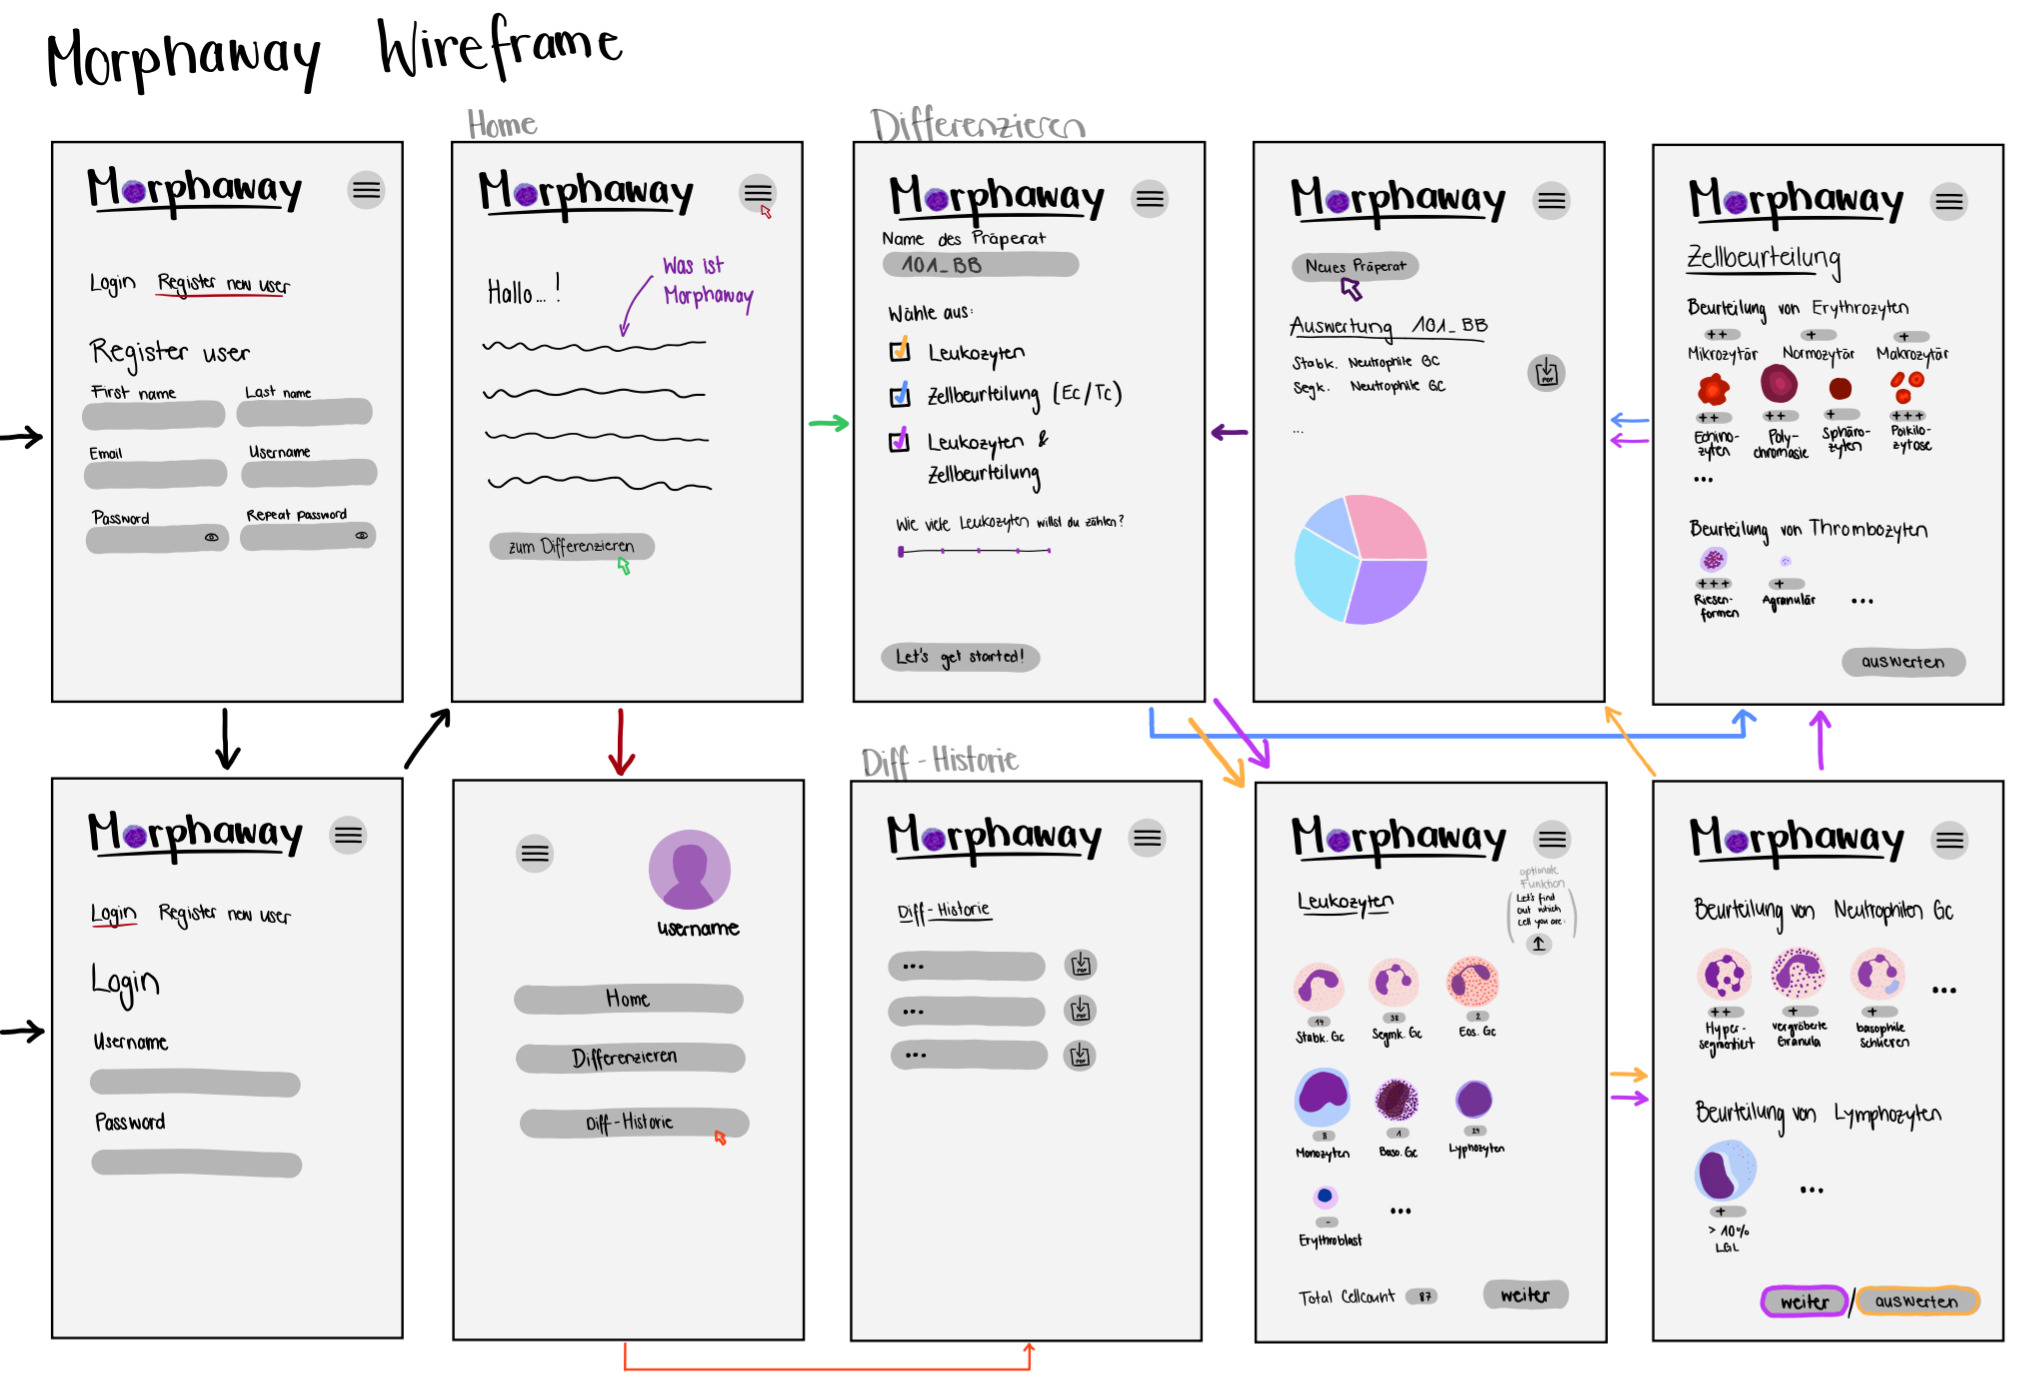 Morphaway Wireframe
Morphaway
Login Register new user
Register user
First name Last name
Email Username
Password Repeat password
Home
Morphaway
Was ist
Morphaway
Hallo...!
zum Differenzieren
Differenzieren
Morphaway
Name des Präperat
101_BB
Wähle aus:
Leukozyten
Zellbeurteilung (Ec/Tc)
Leukozyten &
Zellbeurteilung
Wie viele Leukozyten willst du zählen?
Let's get started!
Morphaway
Neues Präperat
Auswertung 101_BB
Stabk. Neutrophile GC
Segk. Neutrophile GC
PDF
...
Morphaway
Zellbeurteilung
Beurteilung von Erythrozyten
++ + +
Mikrozytär Normozytär Makrozytär
++ ++ + +++
Echino-
zyten
Poly-
chromasie
Sphäro-
zyten
Poikilo-
zytose
...
Beurteilung von Thrombozyten
+++ +
Riesen-
formen
Agranulär
...
auswerten
Morphaway
Login Register new user
Login
Username
Password
username
Home
Differenzieren
Diff-Historie
Diff-Historie
Morphaway
Diff-Historie
... PDF
... PDF
... PDF
Morphaway
optionale
Funktion
Let's find
out which
cell you are.
Leukozyten
14 38 2
Stabk. Gc Segmk. Gc Eos. Gc
8 1 24
Monozyten Baso. Gc Lyphozyten
-
Erythroblast
...
Total Cellcount 87
weiter
Morphaway
Beurteilung von Neutrophilen Gc
...
++ + +
Hyper-
segmentiert
vergröberte
Granula
basophile
Schlieren
Beurteilung von Lymphozyten
...
+
> 10%
LGL
weiter / auswerten